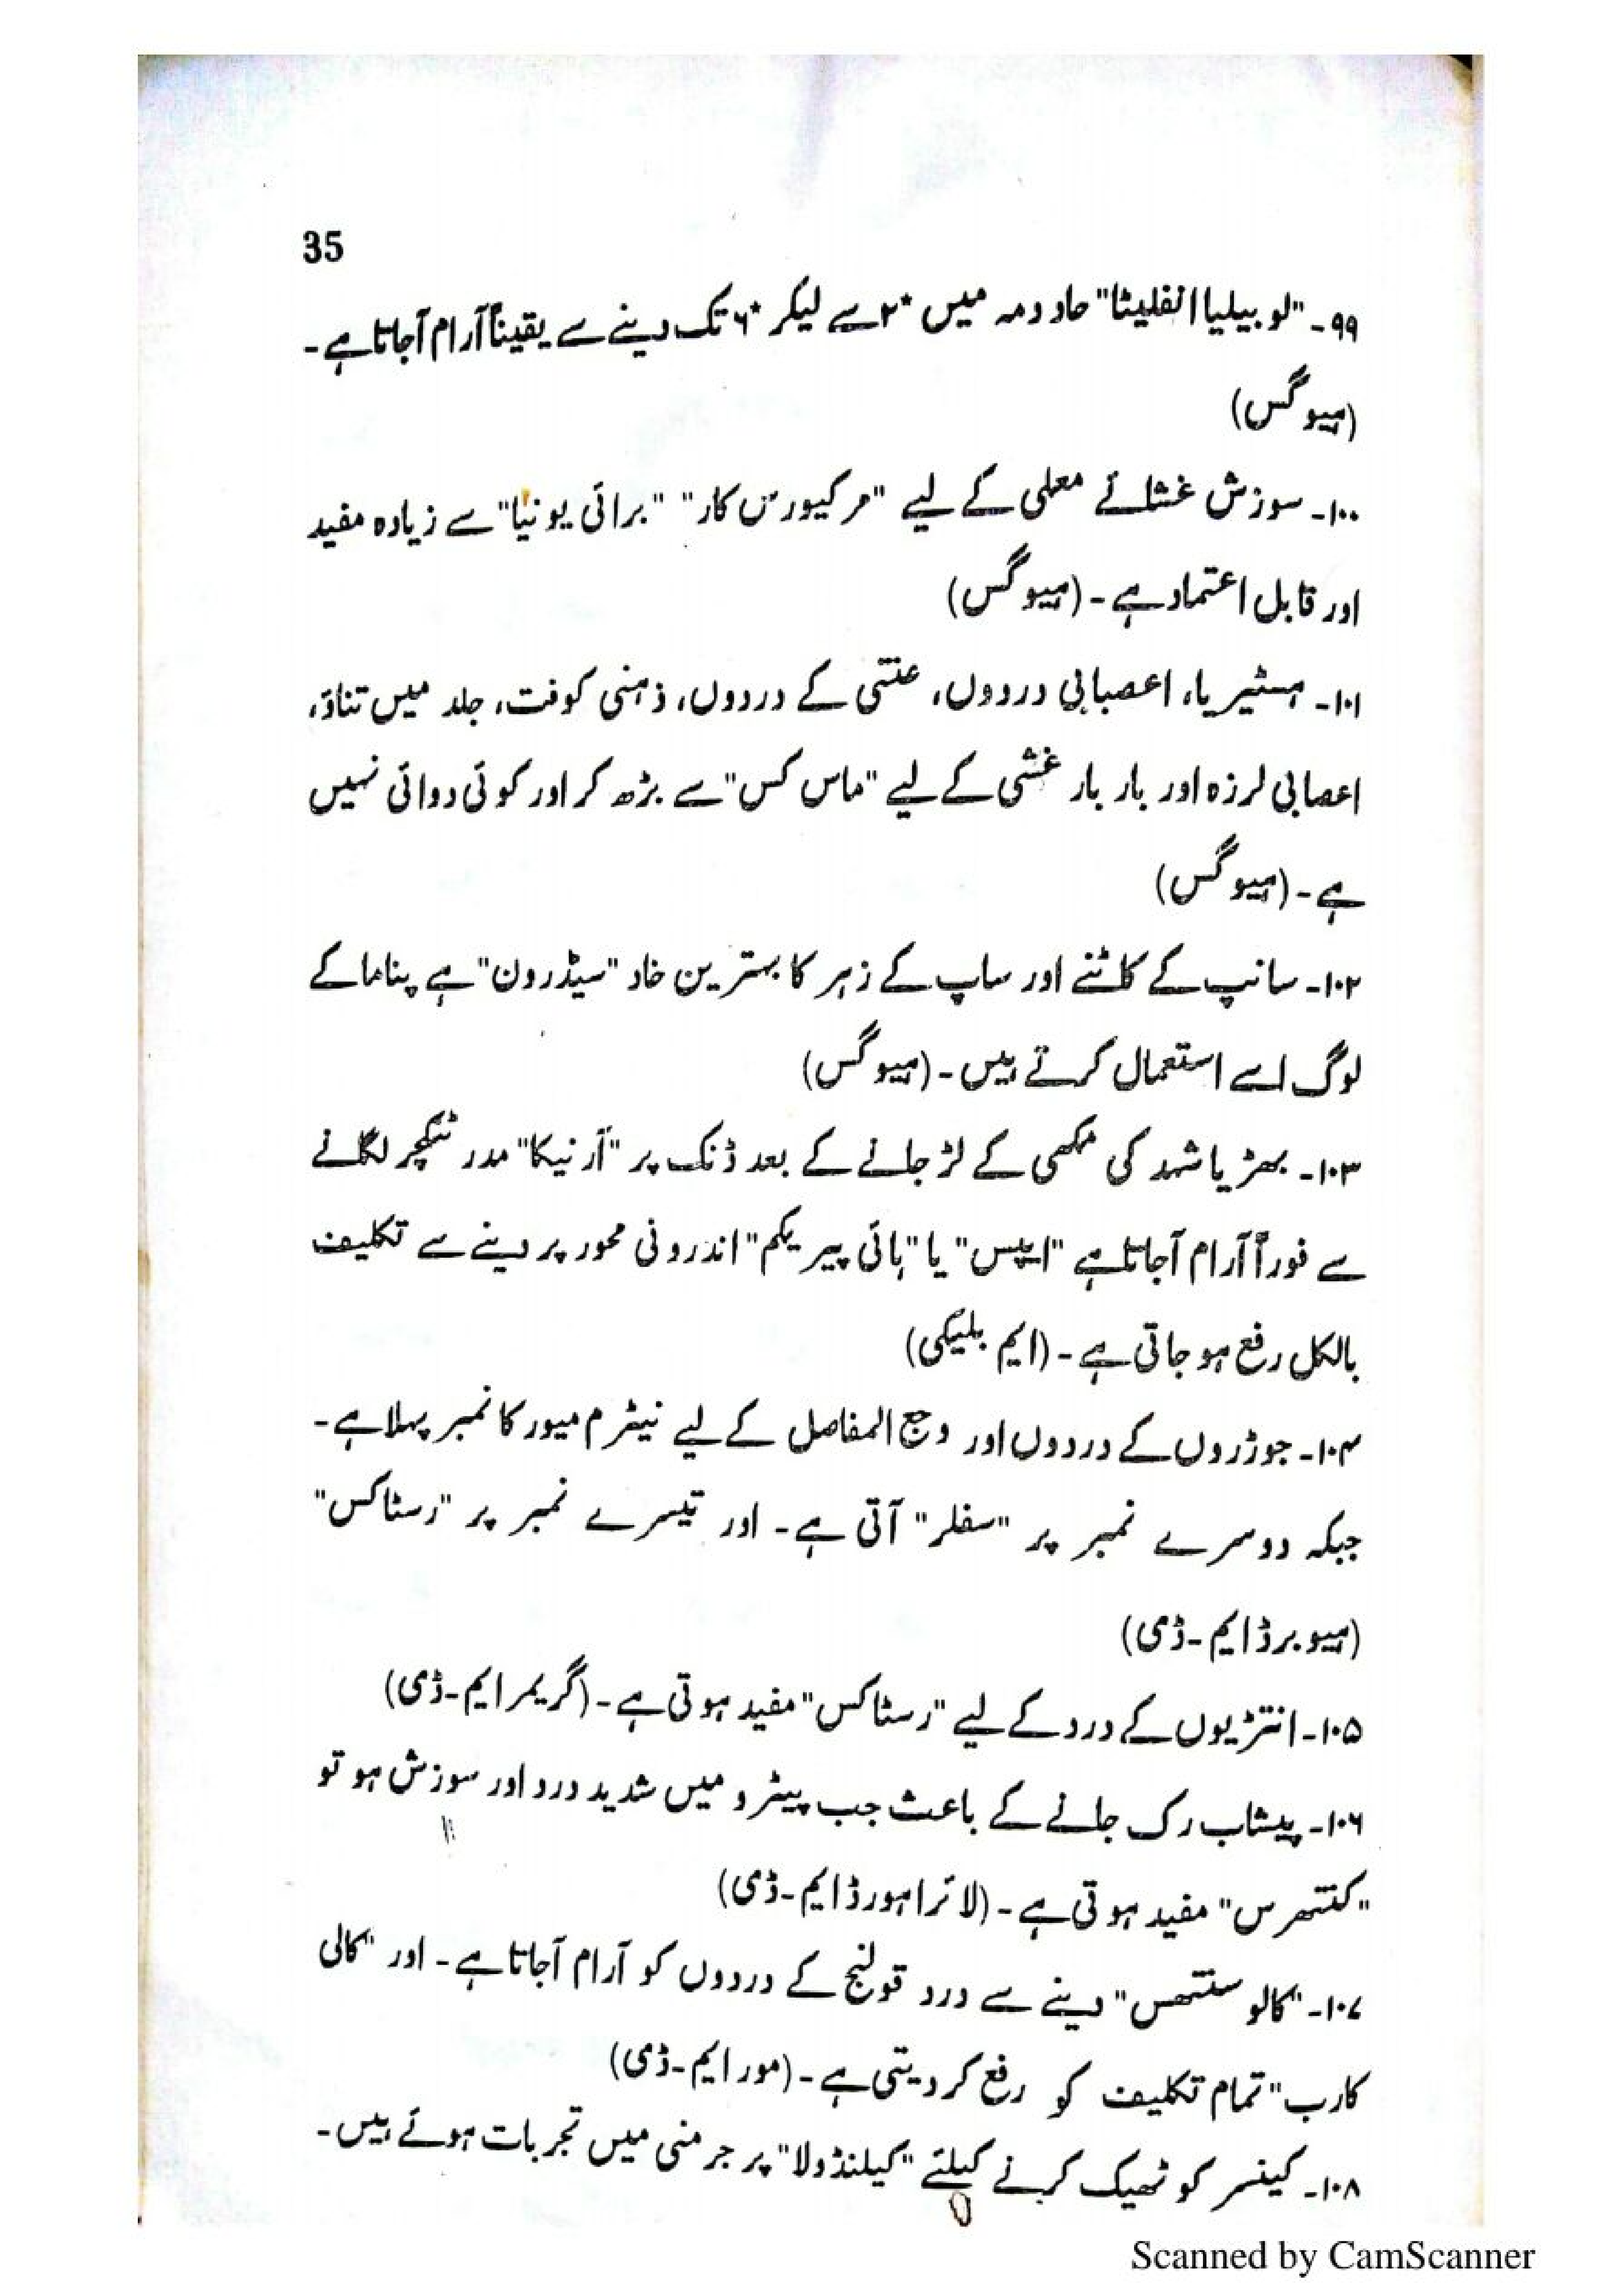 35
۹۹۔ "لوبیلیا انفلیٹا" حاد دمہ میں *۲ سے لیکر *۶ تک دینے سے یقیناً آرام آجاتا ہے۔
(ہیوگس)
۱۰۰۔ سوزش غشائے معلی کے لیے "مرکیورس کار" "برائی یونیا" سے زیادہ مفید
اور قابل اعتماد ہے۔ (ہیوگس)
۱۰۱۔ ہسٹیریا، اعصابی دردوں، عنتی کے دردوں، ذہنی کوفت، جلد میں تناؤ،
اعصابی لرزہ اور بار بار غشی کے لیے "ماس کس" سے بڑھ کر اور کوئی دوائی نہیں
ہے۔ (ہیوگس)
۱۰۲۔ سانپ کے کاٹنے اور ساپ کے زہر کا بہترین خاد "سیڈرون" ہے پناما کے
لوگ اسے استعمال کرتے ہیں۔ (ہیوگس)
۱۰۳۔ بھڑ یا شہد کی مکھی کے لڑ جانے کے بعد ڈنک پر "آرنیکا" مدر ٹنکچر لگانے
سے فوراً آرام آجاتا ہے "ایپس" یا "ہائی پیریکم" اندرونی محور پر دینے سے تکلیف
بالکل رفع ہو جاتی ہے۔ (ایم بلیکی)
۱۰۴۔ جوڑروں کے دردوں اور وجع المفاصل کے لیے نیٹرم میور کا نمبر پہلا ہے۔
جبکہ دوسرے نمبر پر "سفلر" آتی ہے۔ اور تیسرے نمبر پر "رسٹاکس"
(ہیوبرڈ ایم۔ڈی)
۱۰۵۔ انتڑیوں کے درد کے لیے "رسٹاکس" مفید ہوتی ہے۔ (گریمر ایم۔ڈی)
۱۰۶۔ پیشاب رک جانے کے باعث جب پیٹرو میں شدید درد اور سوزش ہو تو
"کنتھرس" مفید ہوتی ہے۔ (لائرا ہورڈ ایم۔ڈی)
۱۰۷۔ "کالو سنتھس" دینے سے درد قولنج کے دردوں کو آرام آجاتا ہے۔ اور "کالی
کارب" تمام تکلیف کو رفع کر دیتی ہے۔ (مور ایم۔ڈی)
۱۰۸۔ کینسر کو ٹھیک کرنے کیلئے "کیلنڈولا" پر جرمنی میں تجربات ہوئے ہیں۔
Scanned by CamScanner